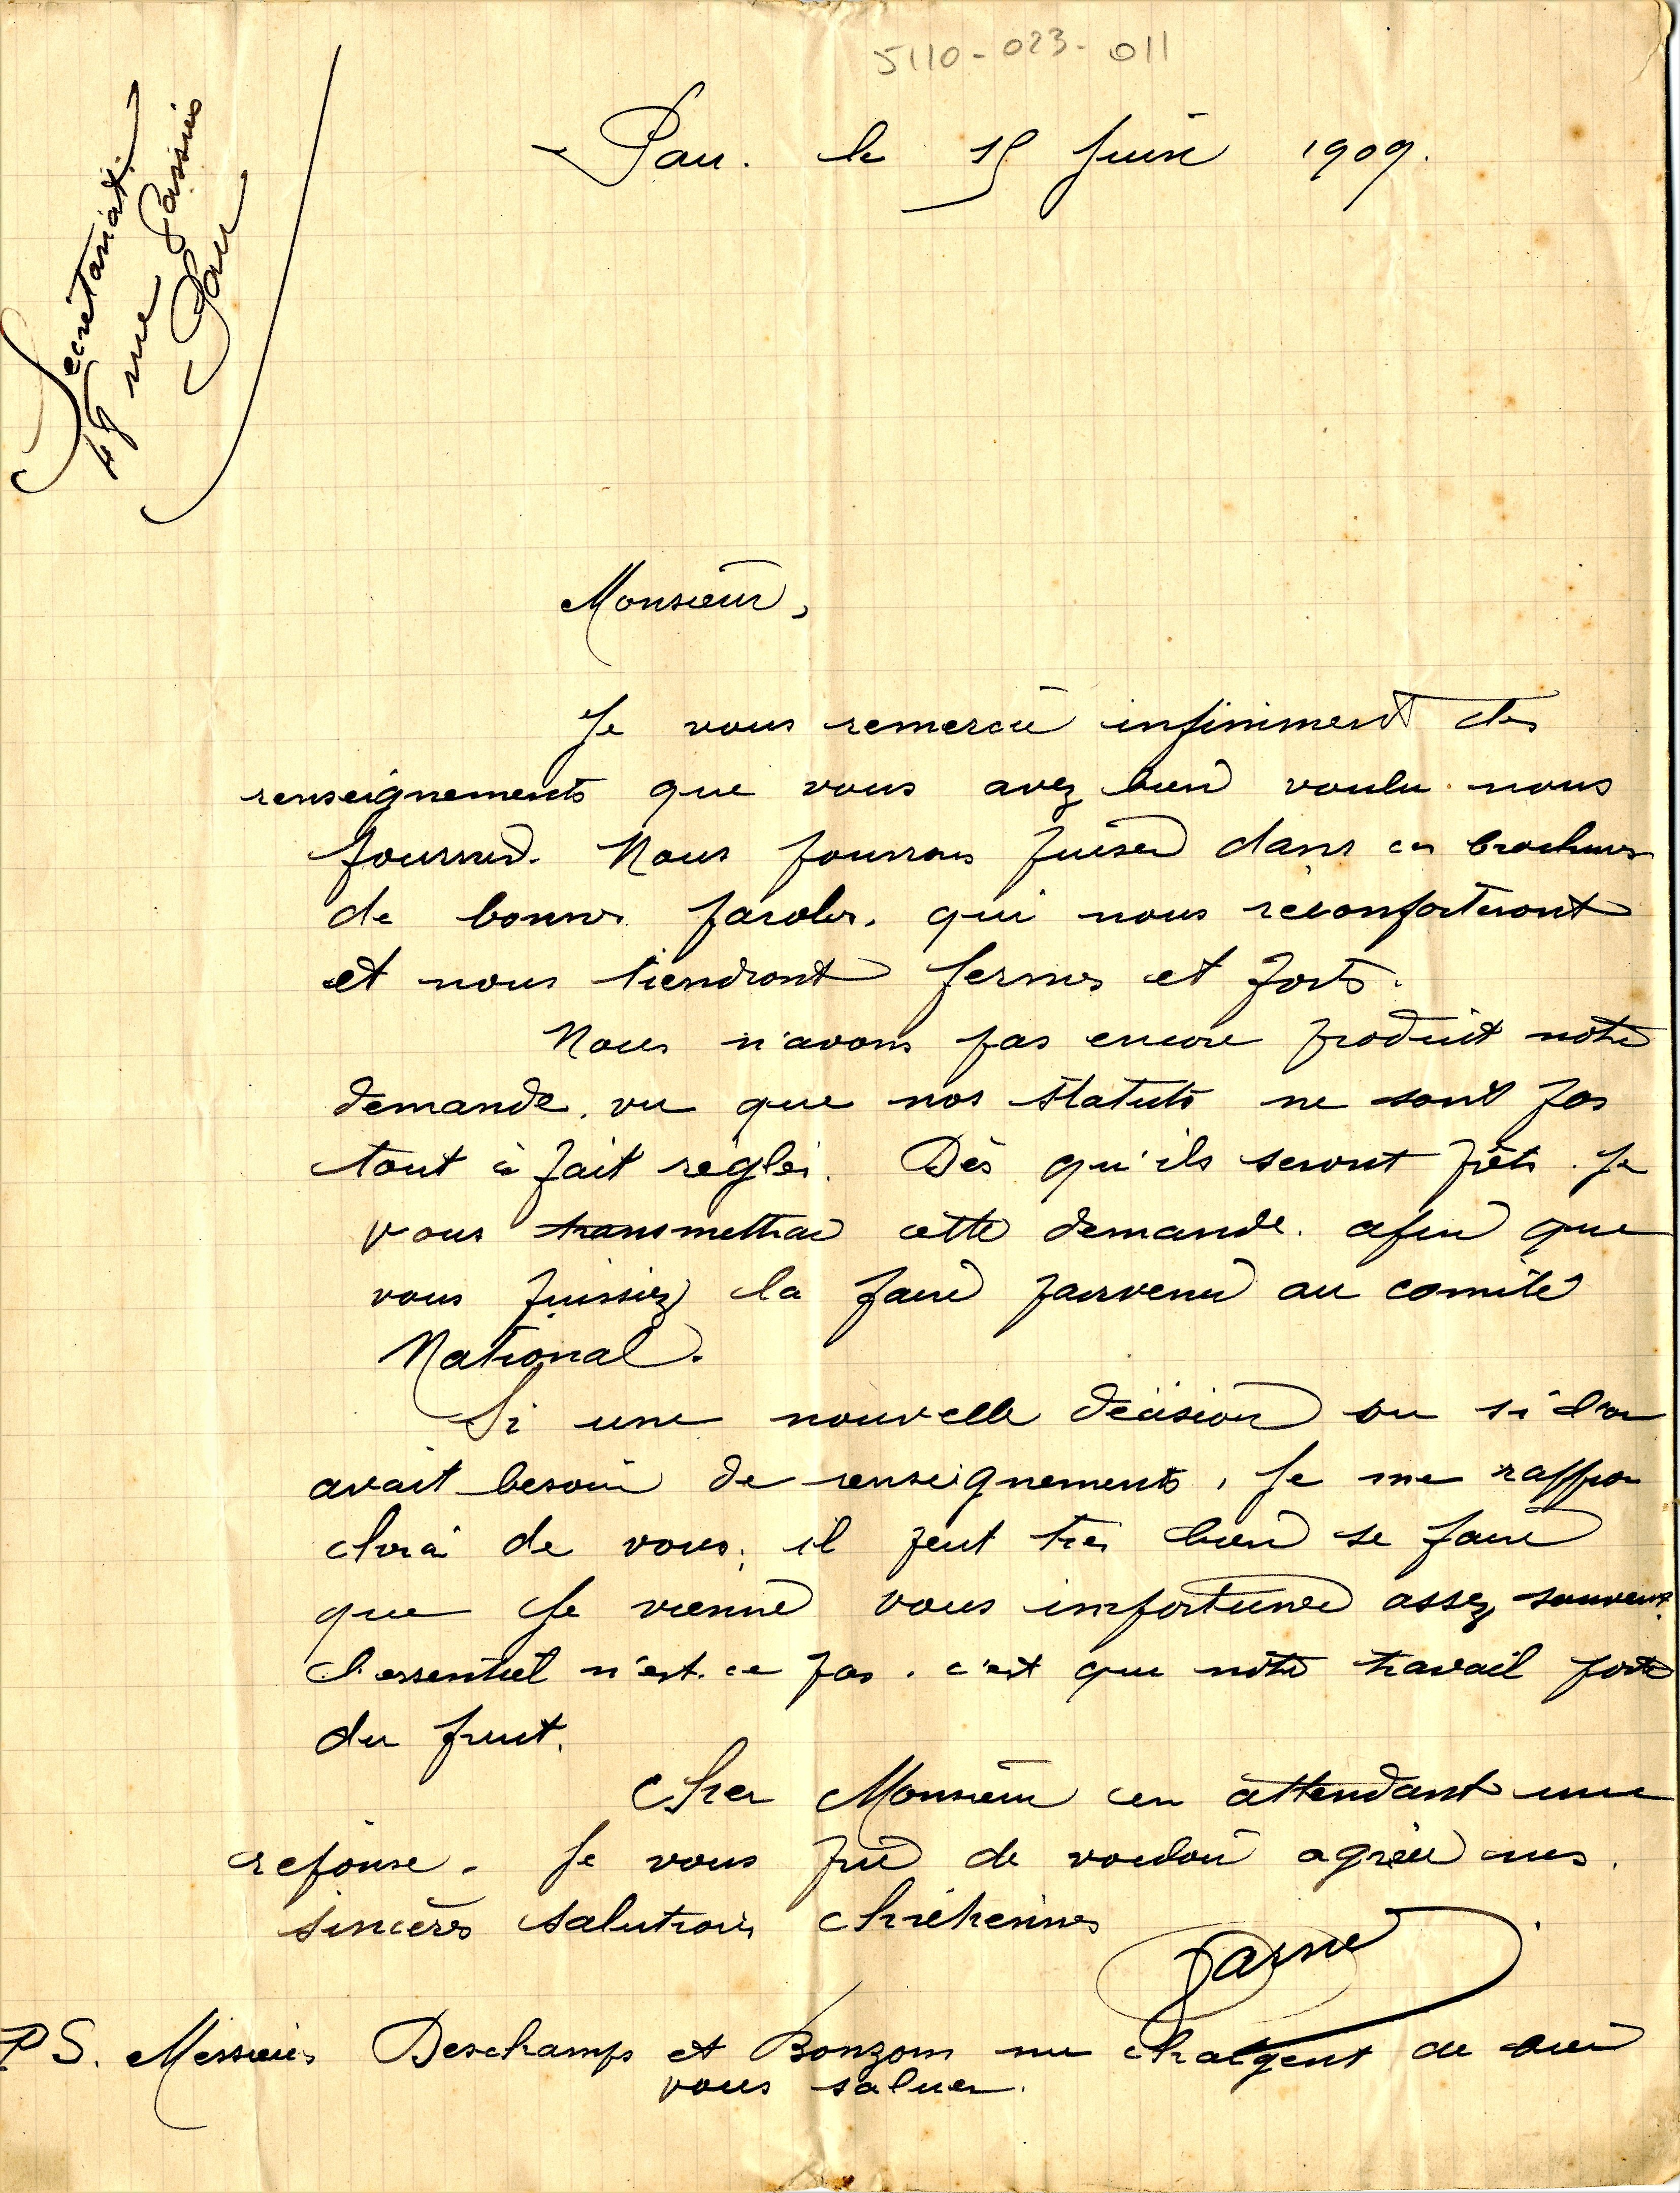 5110-023-011
Pau. le 15 Juin 1909.
Secrétariat.
48 rue
Pau
Monsieur,
Je vous remercie infiniment des
renseignements que vous avez bien voulu nous
fournir. Nous pourrons puiser dans ces brochures
de bonnes paroles. qui nous réconforteront
et nous tiendront fermes et forts.
Nous n'avons pas encore produit notre
demande. vu que nos statuts ne sont pas
tout à fait réglés. Dès qu'ils seront prêts. Je
vous transmettrai cette demande. afin que
vous puissiez la faire parvenir au comité
National.
Si une nouvelle décision ou si l'on
avait besoin de renseignements, Je me rappro
cherai de vous; il peut très bien se faire
que Je vienne vous importuner assez souvent.
L'essentiel n'est-ce pas. c'est que notre travail porte
du fruit.
Cher Monsieur en attendant une
réponse. Je vous prie de vouloir agréer mes.
sincères salutations chrétiennes
P.S. Messieurs Deschamps et Bonzom me chargent de bien
vous saluer.